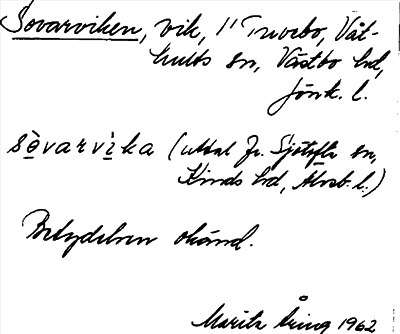 Sovarviken, vik, i Truvebo, Våt-
hults sn, Västbo hd,
Jönk. l.
sòvarvìka (uttal fr. Sjötofta sn,
Kinds hd, Älvsb. l.)
Betydelsen okänd.
Marita Åring 1962